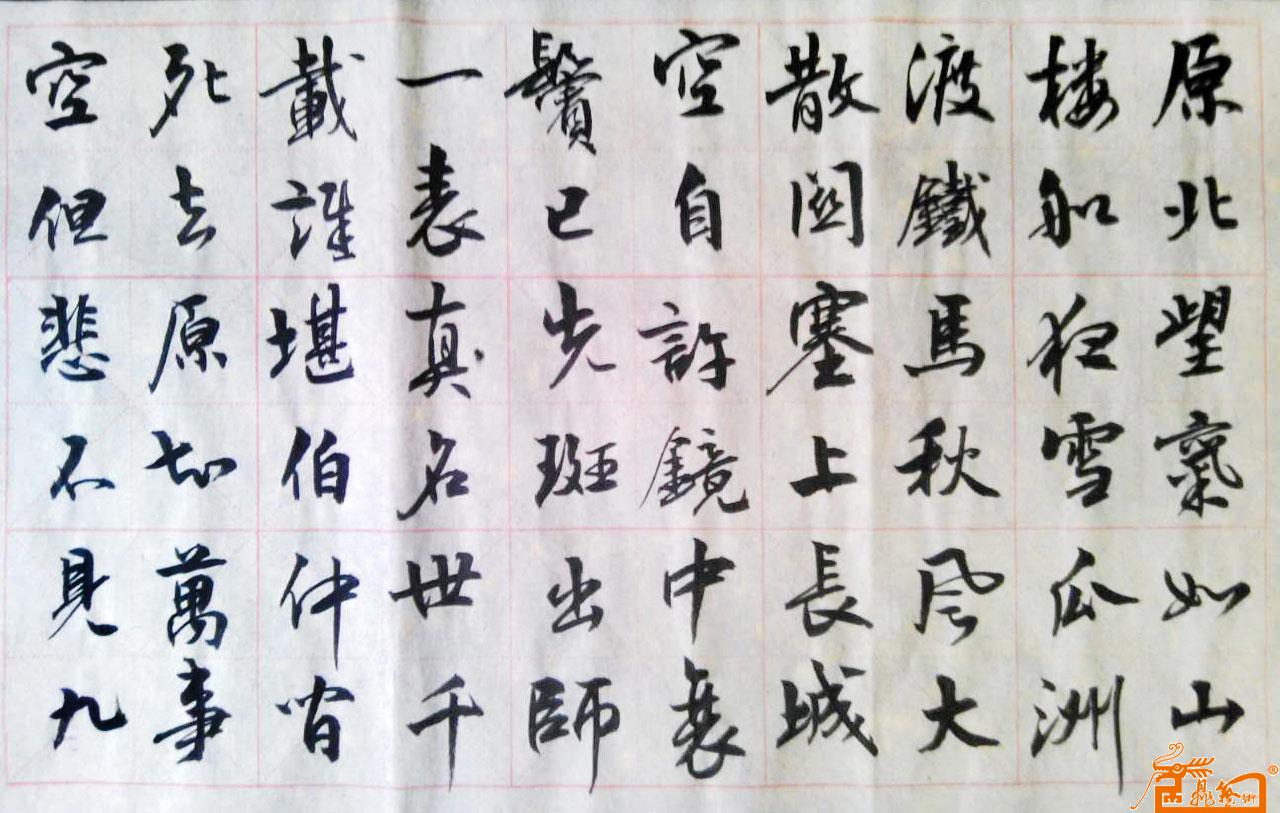 原北望氣如山
楼船夜雪瓜洲
渡鐵馬秋风大
散関塞上長城
空自許鏡中衰
鬢已先斑出師
一表真名世千
載誰堪伯仲間
死去原知萬事
空但悲不見九